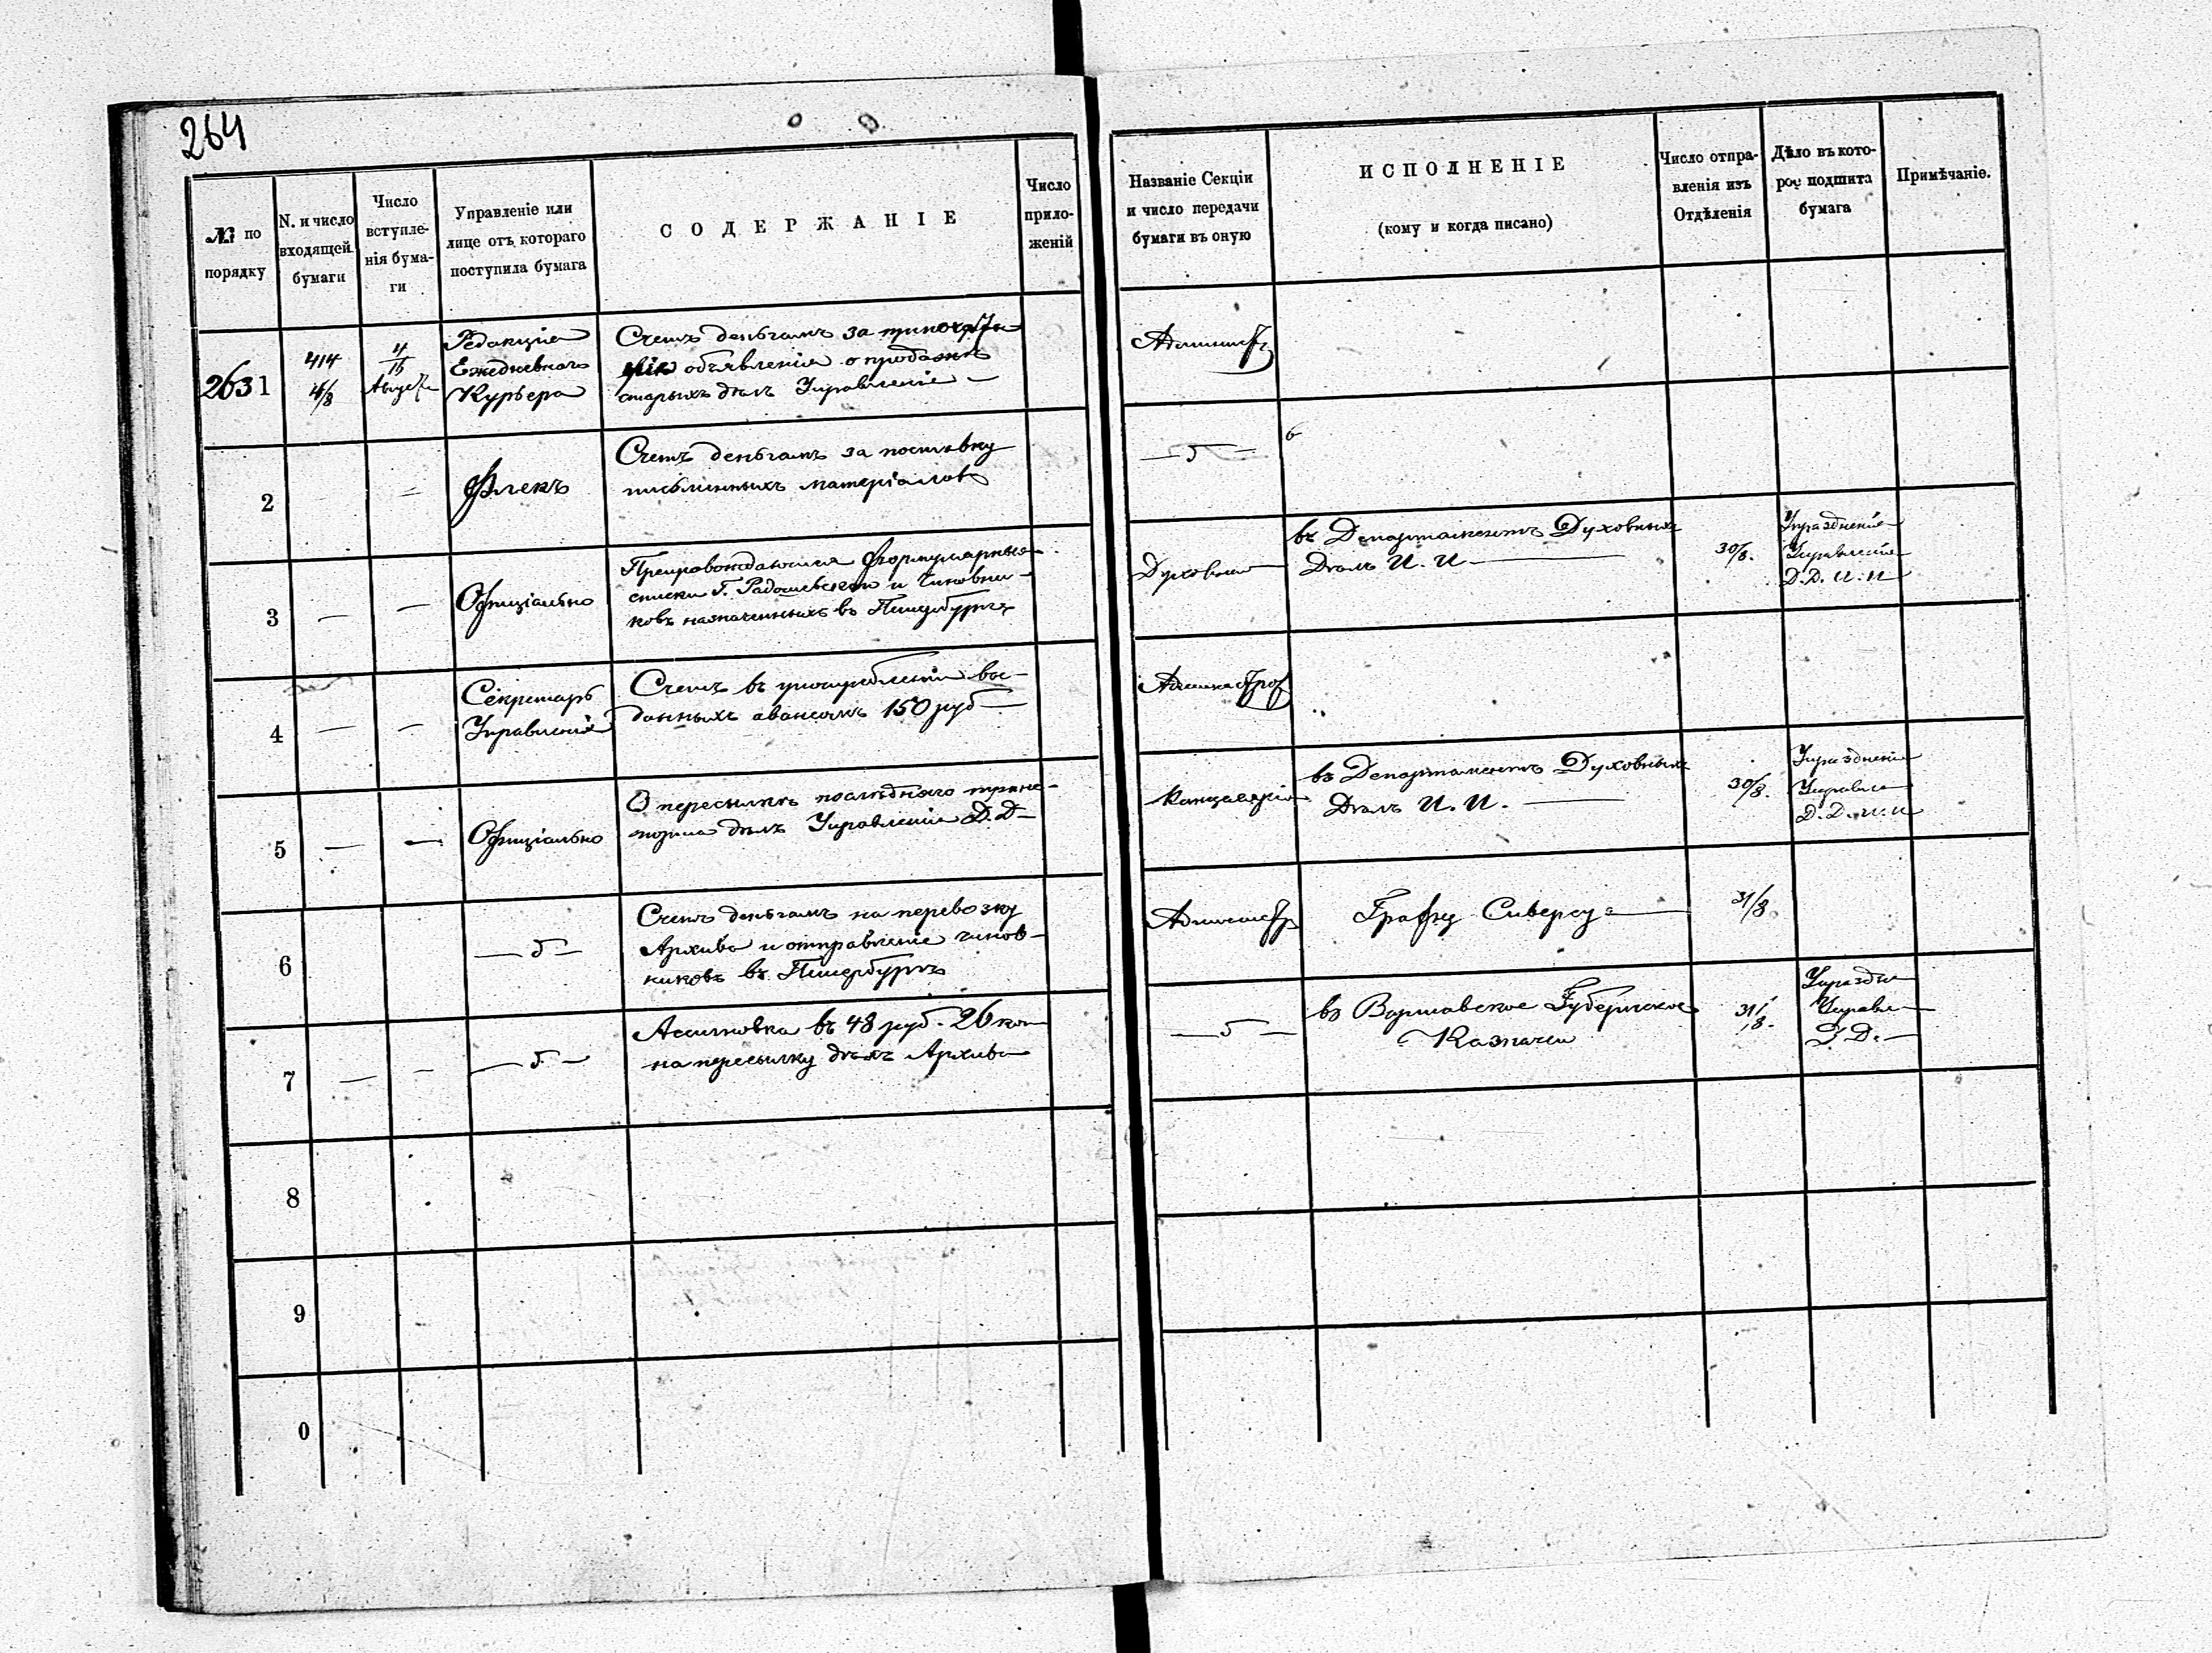 264
№ по порядку
N. и число входящей бумаги
Число вступле-
нія бума-
ги
Управленіе или
лице отъ котораго
поступила бумага
СОДЕРЖАНІЕ
Число
прило-
женій
Названіе Секціи
и число передачи
бумаги въ оную
ИСПОЛНЕНІЕ
(кому и когда писано)
Число отпра-
вленія изъ
Отдѣленія
Дѣло въ кото-
рое подшита
бумага
Примѣчаніе.
2631
414
4/8
4/16
Августа
Редакція
Ежедневнаго
Курьера
Счетъ деньгамъ за
объявленія о продажѣ
старыхъ дѣлъ Управленія
Админист
2
Флекъ
Счетъ деньгамъ за поставку
письменныхъ матеріаловъ
3
Офиціально
Препровождаются формулярные
списки Г. Радошевскаго и Чиновни-
ковъ назначенныхъ въ Петербургъ
Духовная
въ Департаментъ Духовныхъ
Дѣлъ И. И.
30/8.
Упраздненіе
Управленія
Д. Д. И. И
4
Секретарь
Управленія
Счетъ въ употребленіи вы-
данныхъ авансомъ 150 руб
Администрац
5
Офиціально
О пересылкѣ послѣдняго транс-
порта дѣлъ Управленія Д. Д
Канцелярія
въ Департаментъ Духовныхъ
Дѣлъ И. И.
30/8.
Упраздненіе
Управле
Д. Д. И. И
6
Счетъ деньгамъ на перевозку
Архива и отправленіе чинов-
никовъ въ Петербургъ
Админист
Графу Сиверсу
31/8.
7
Ассигновка въ 48 руб. 26 коп
на пересылку дѣлъ Архива
въ Варшавское Губернское
Казначей
31/8.
Упраздн
Управле
Д. Д.
8
9
0